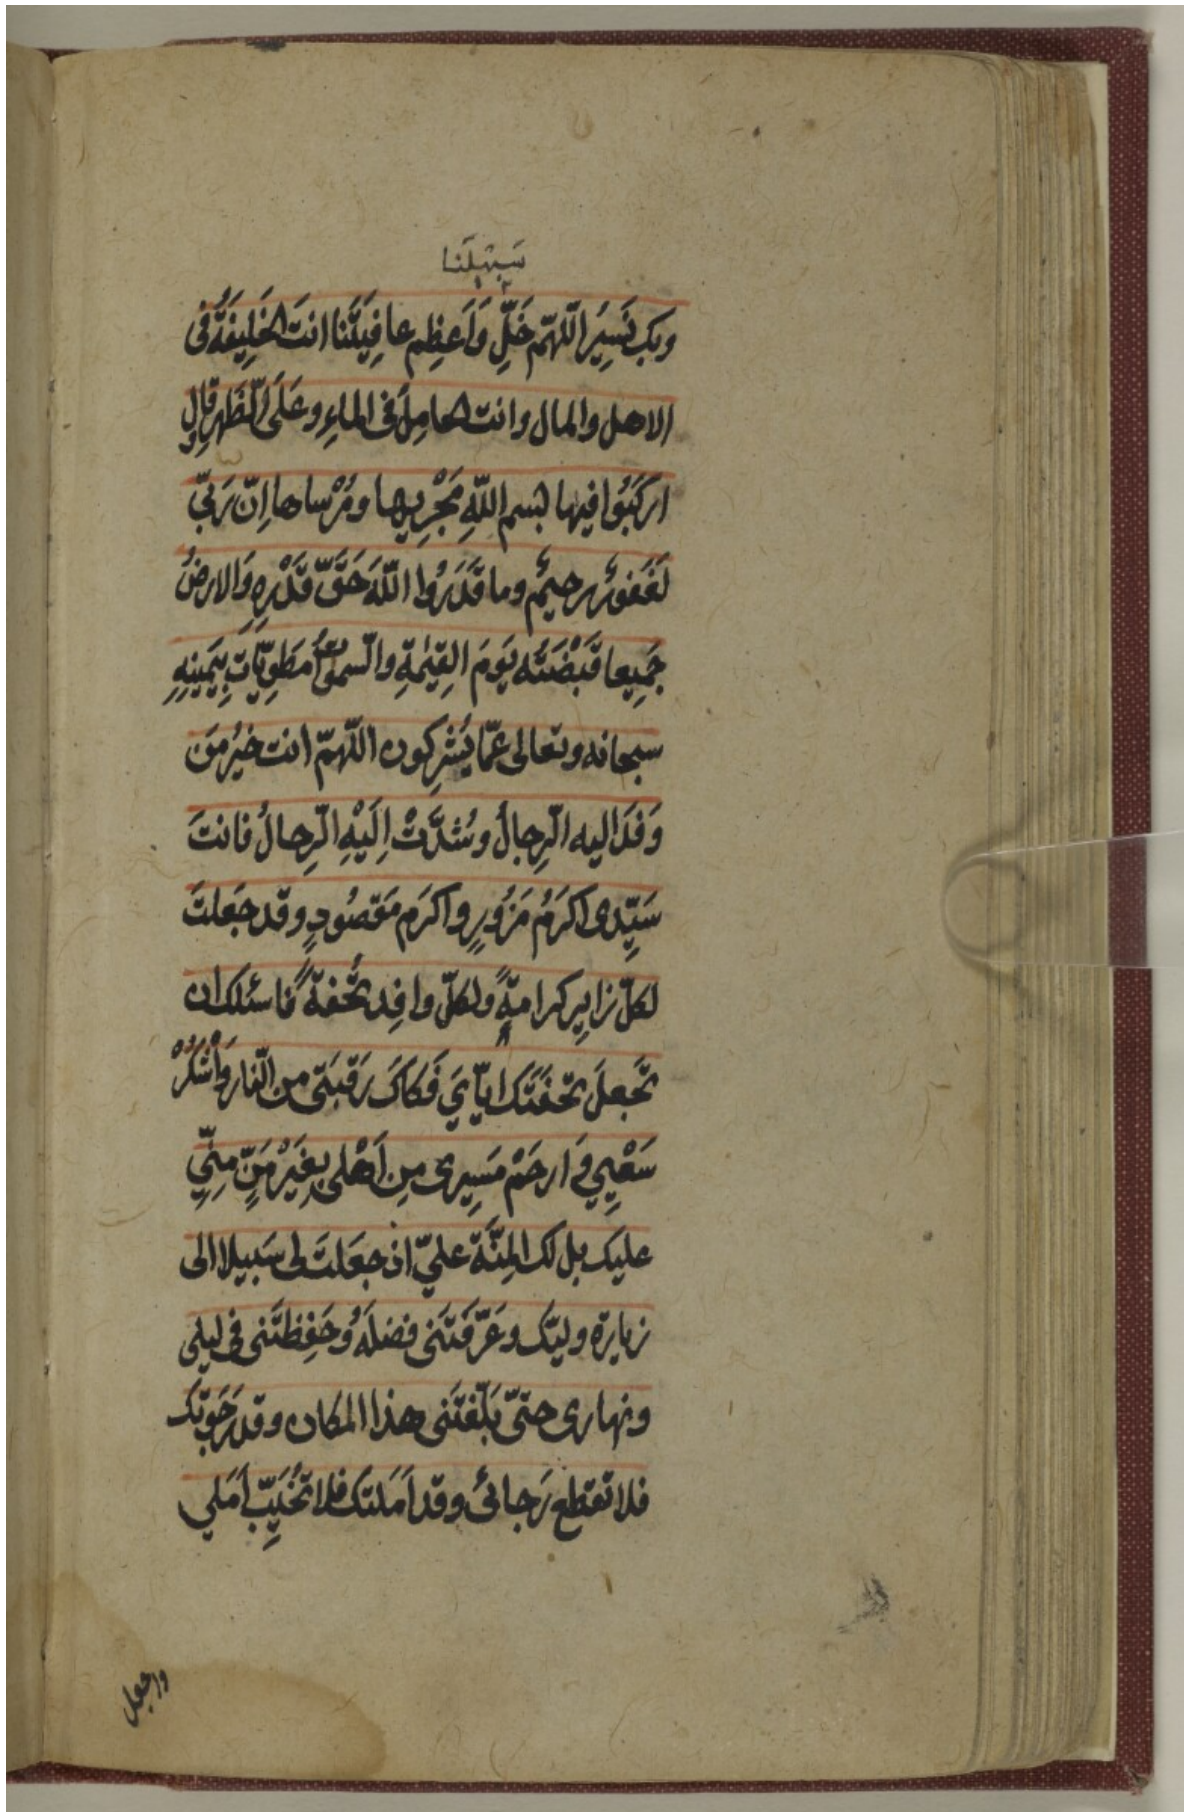 سَبِيلَنا
وبک نَسِيرُ اللّهمّ خَلِّ وَاَعظِم عافِيَتَنا انتَ الخَلِيفَةُ فى
الاهل والمال وانت الحامِلُ فى الماءِ وعَلَى الظَهرِ قال
اركَبُوا فيها بسم اللّهِ مَجْرِيها ومُرْساها اِنّ رَبّى
لَغَفورٌ رحيمٌ وما قَدَرُوا اللّهَ حَقَّ قَدْرِهِ وَالارضُ
جَمِيعا قَبْضَتُه يَومَ القِيٰمَةِ والسّمٰواتُ مَطوِيّاتٌ بِيَمِينِهِ
سبحانه وتعالى عمّا يُشرِكون اللّهمّ انت خيرُ مَن
وَفَدَ اليه الرّجالُ وشُدَّتْ اِلَيْهِ الرّحالُ فانتَ
سَيِّدى اكرَمُ مَزُورٍ واكرَم مَقصُودٍ وقد جَعَلتَ
لكلّ زايِرٍ كرامةً ولكلّ وافِدٍ تُحفةً فاسئلك ان
تَجعلَ تحفَتَک ايّاىَ فَكاکَ رَقبَتى من النّار وَاْشْكُرْ
سَعْيِي وَارحَمْ مَسِيرى مِن اَهْلى بِغَيْرِ مَنٍّ مِنّى
عليک بل لک المِنَّة علىّ اذ جعَلتَ لى سَبيلا الى
زيارة وليّک وعَرّفتَنى فضلَهُ وحَفِظتَنى فى ليلى
ونهارى حتىّ بَلّغتَنى هذا المكان وقد رَجَوتک
فلا تقطع رَجائى وقد اَمَلتک فلا تُخَيِّب اَمَلي
واجعل